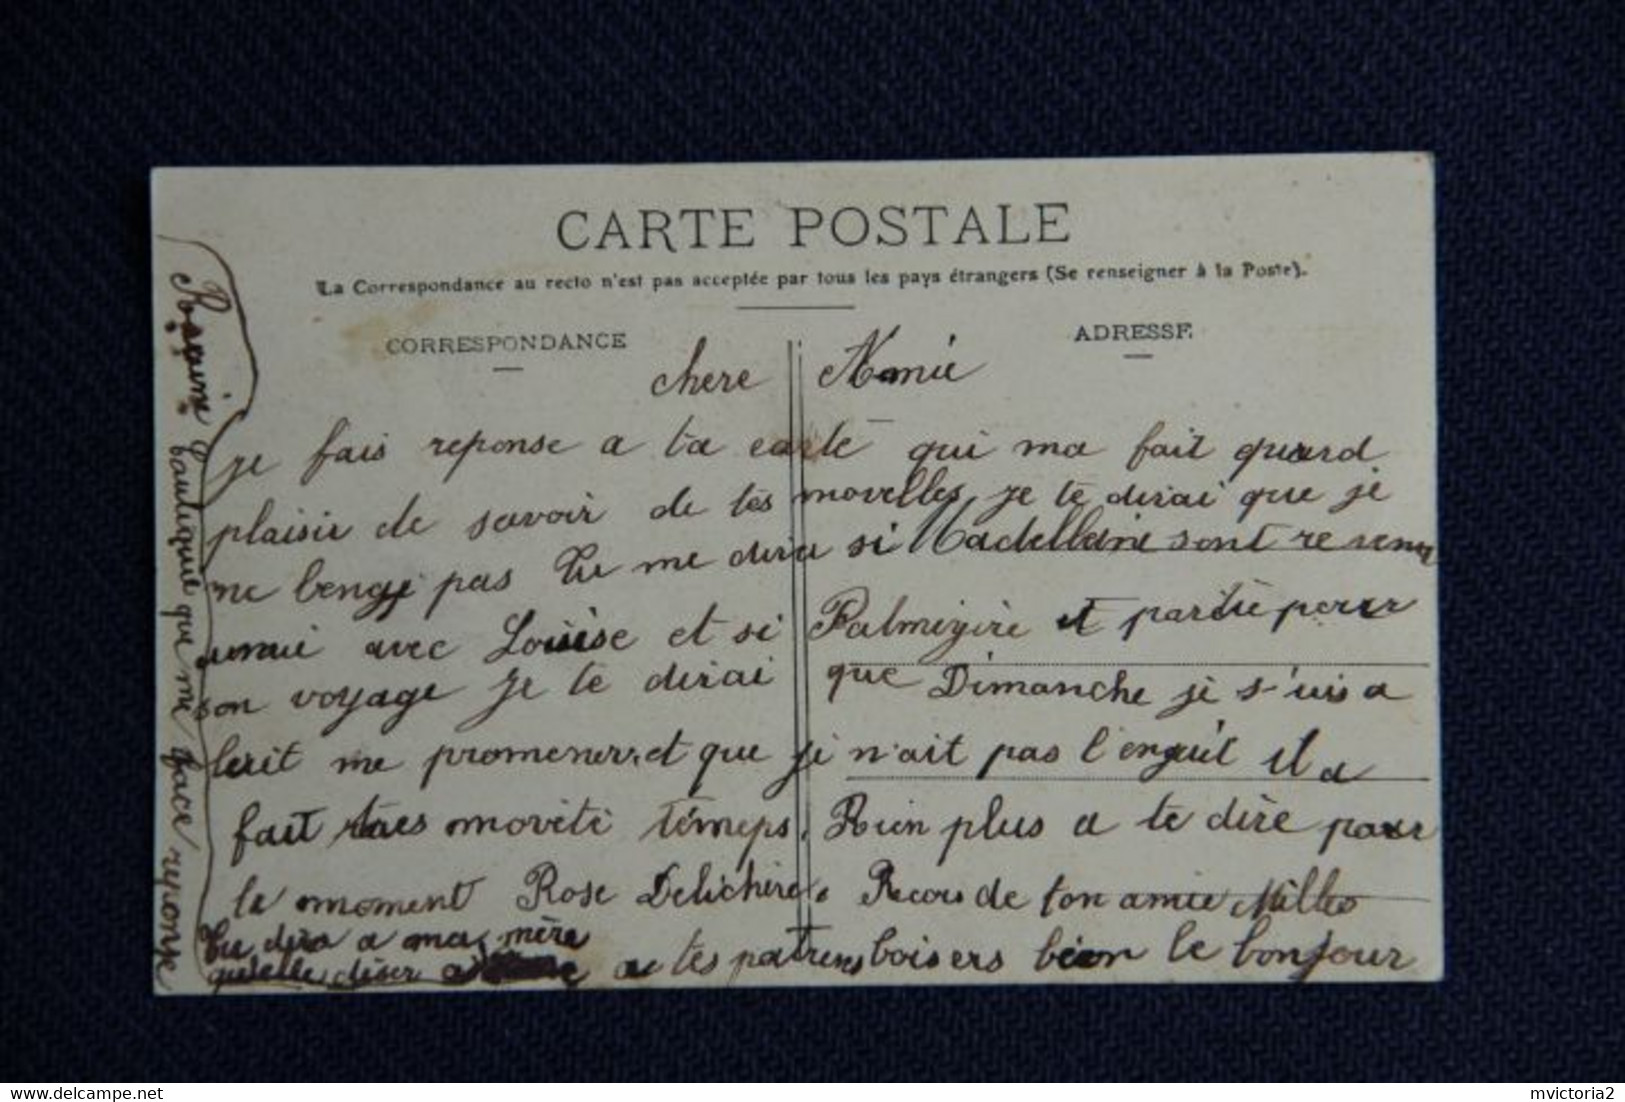 CARTE POSTALE
La Correspondance au recto n'est pas acceptée par tous les pays étrangers (Se renseigner à la Poste).
CORRESPONDANCE
ADRESSE
chere Amie
je fais reponse a ta carte qui ma fait quard
plaisir de savoir de tes movelles, je te dirai que je
me lengi pas Tu me dira si Madelleine sont revenu
avec Louise et si Palmigire et partie pour
son voyage je te dirai que Dimanche je s'uis a
lerit me promener, et que je n'ait pas l'enguit il a
fait tres moveti temps. Rien plus a te dire pour
le moment Rose Delichere. Recois de ton amie Milles
boisers bien le bonjour a tes patrens
Tu dira a ma mère
qu'elle
que me face reponse
mvictoria2